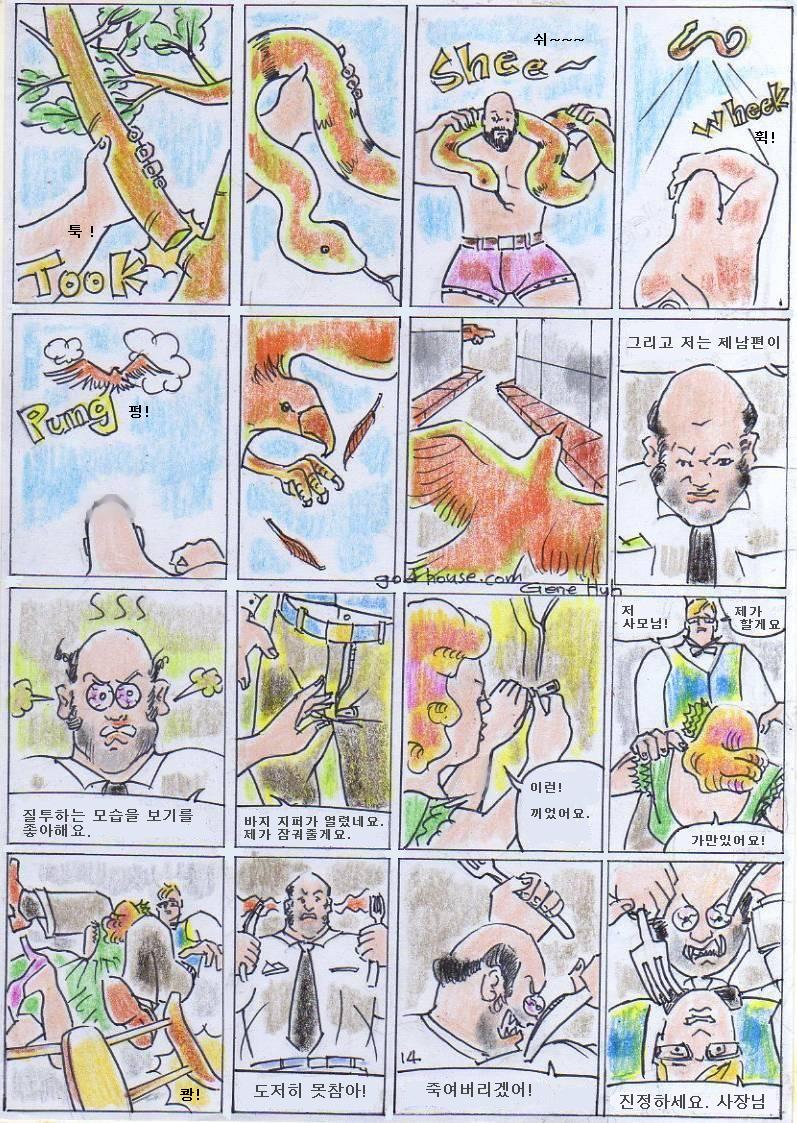 툭 !
Took
쉬~~~
Shee~
Wheek
휙!
Pung
펑!
그리고 저는 제남편이
golf house.com
Gene Huh
SSS
질투하는 모습을 보기를
좋아해요.
바지 지퍼가 열렸네요.
제가 잠궈줄게요.
이런!
끼었어요.
저
사모님!
제가
할게요
가만있어요!
쾅!
도저히 못참아!
14
죽여버리겠어!
진정하세요. 사장님